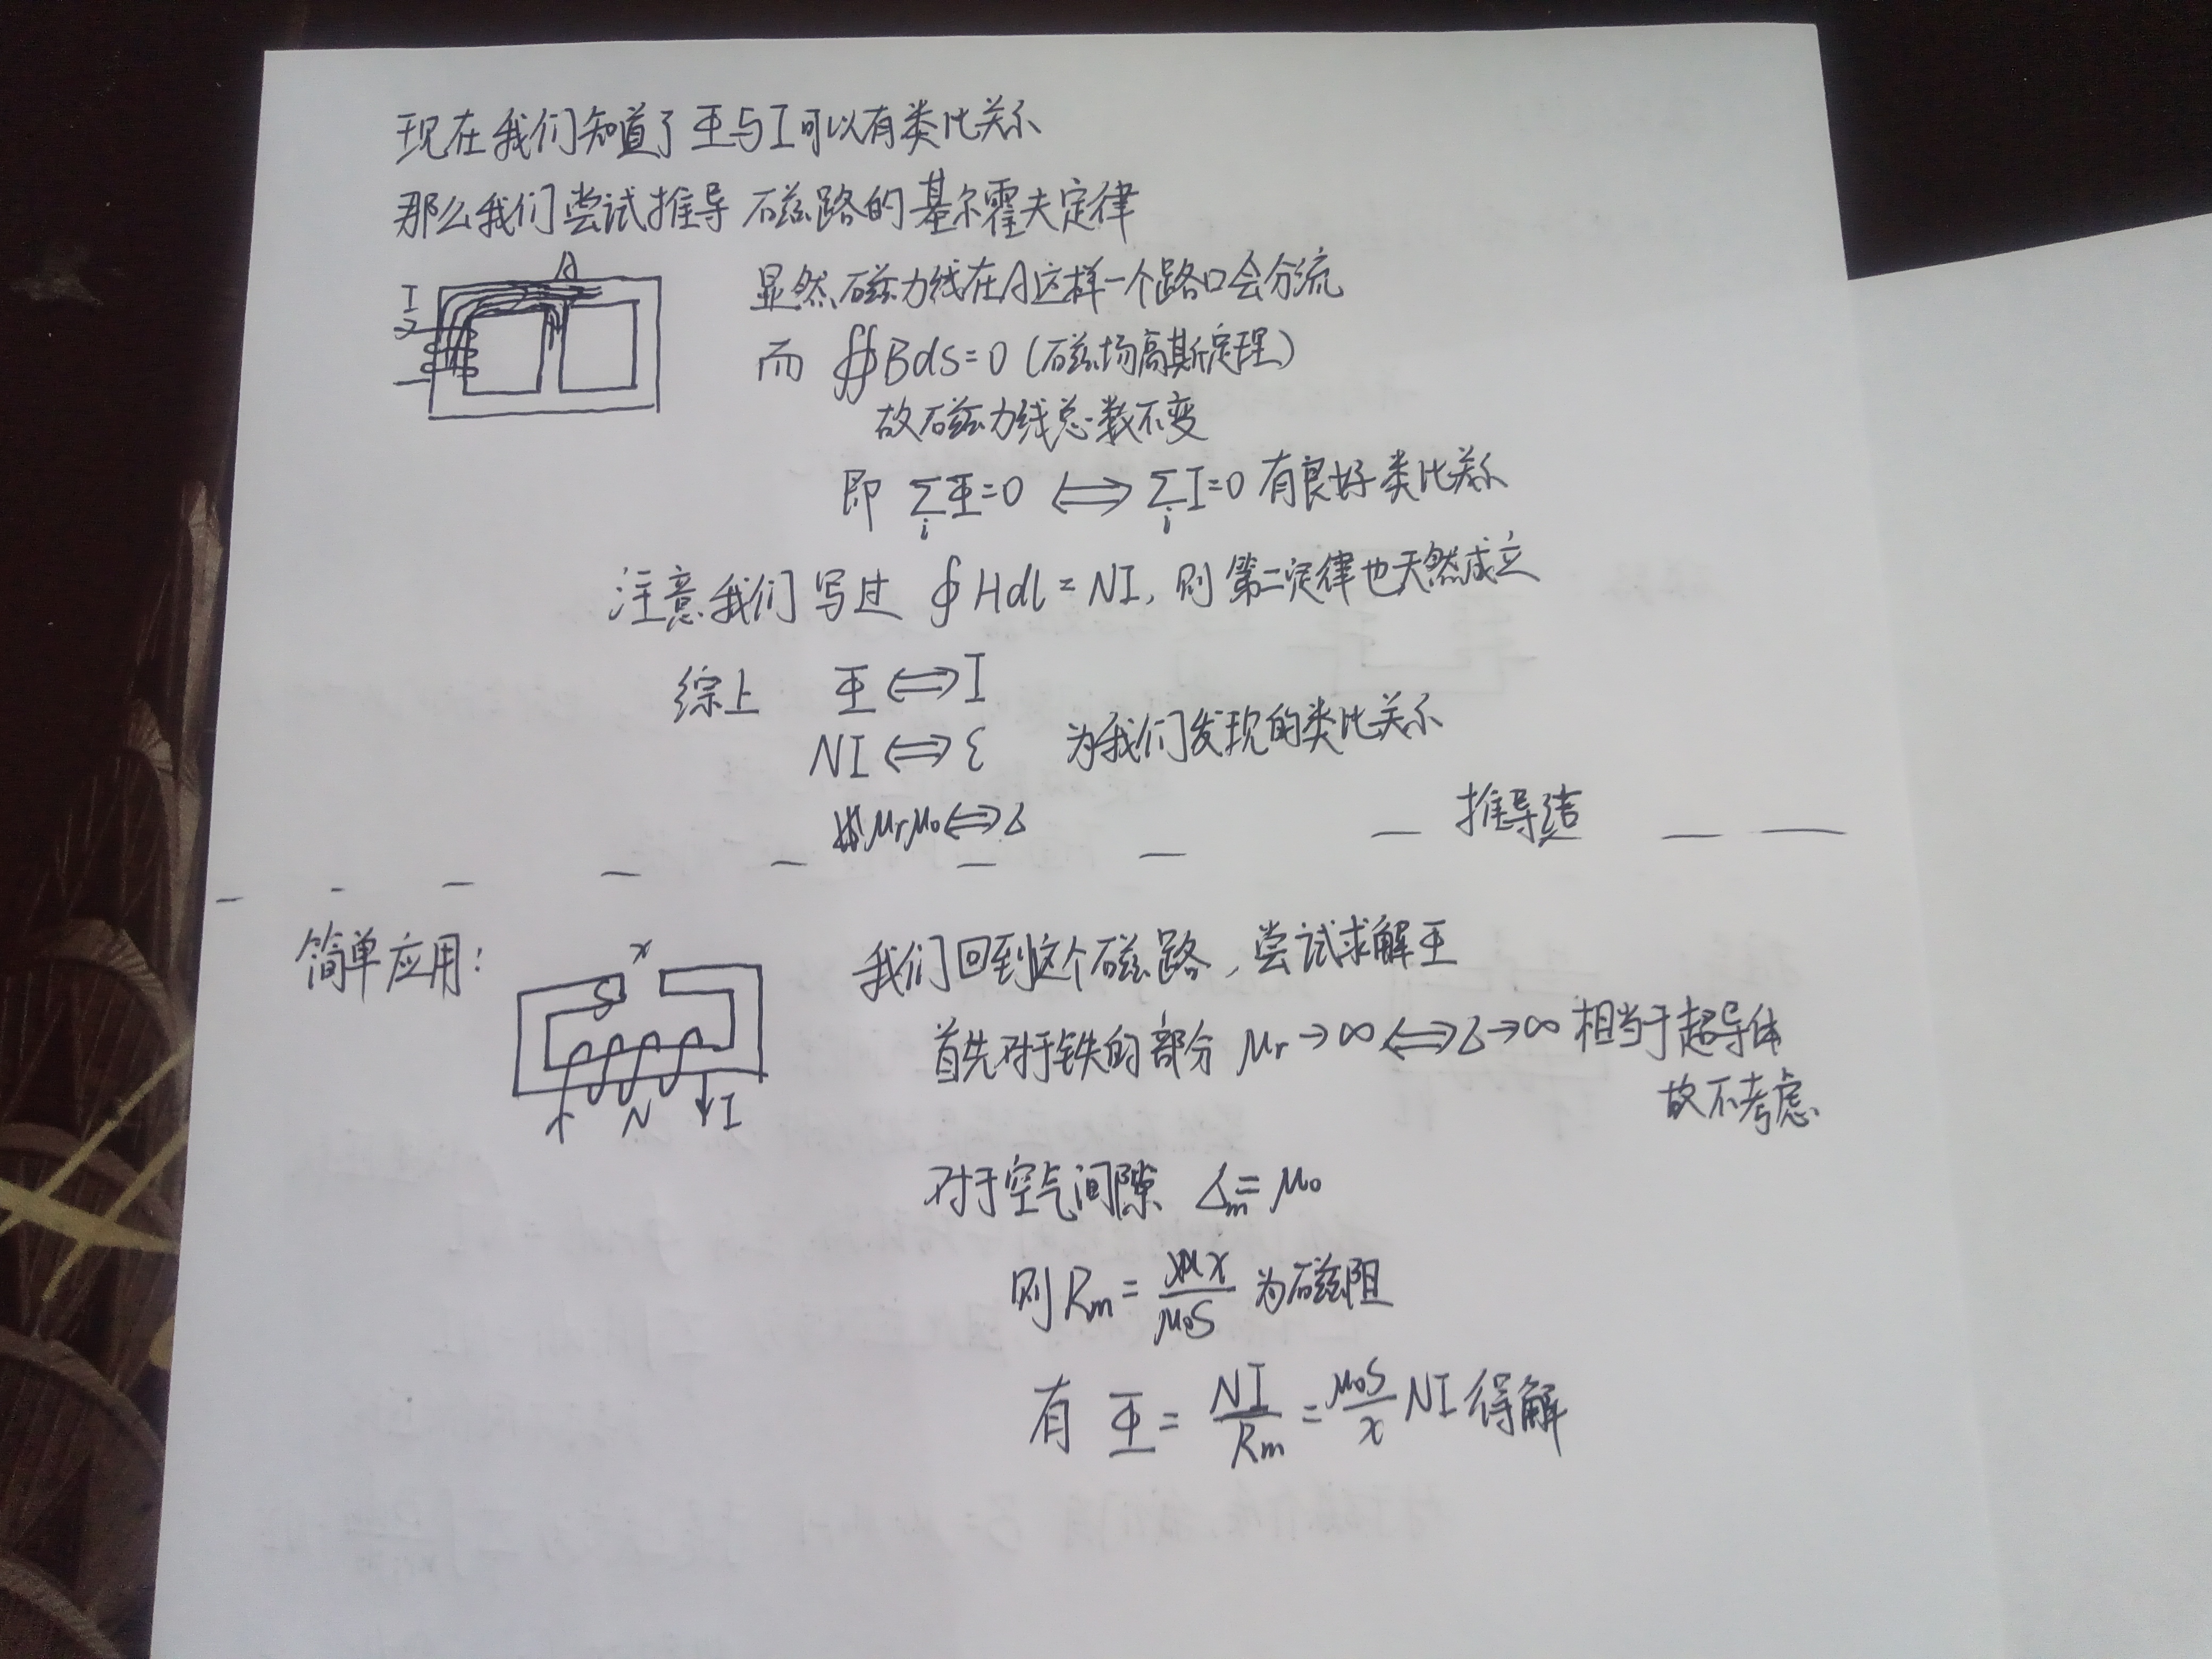 现在我们知道了Φ与I可以有类比关系
那么我们尝试推导磁路的基尔霍夫定律
A
I
显然磁力线在A这样一个路口会分流
而 ∯Bds=0（磁场高斯定理）
故磁力线总数不变
即 ∑i Φ=0 ⟺ ∑i I=0 有良好类比关系
注意我们写过 ∮Hdl=NI，则第二定律也天然成立
综上 Φ⟺I
NI⟺ε 为我们发现的类比关系
μrμ0⟺σ
推导结
简单应用：
x
S
N
I
我们回到这个磁路，尝试求解Φ
首先对于铁的部分 μr→∞⟺σ→∞ 相当于超导体
故不考虑
对于空气间隙 σm=μ0
则Rm=x/μ0S 为磁阻
有 Φ=NI/Rm=μ0S/x NI 得解